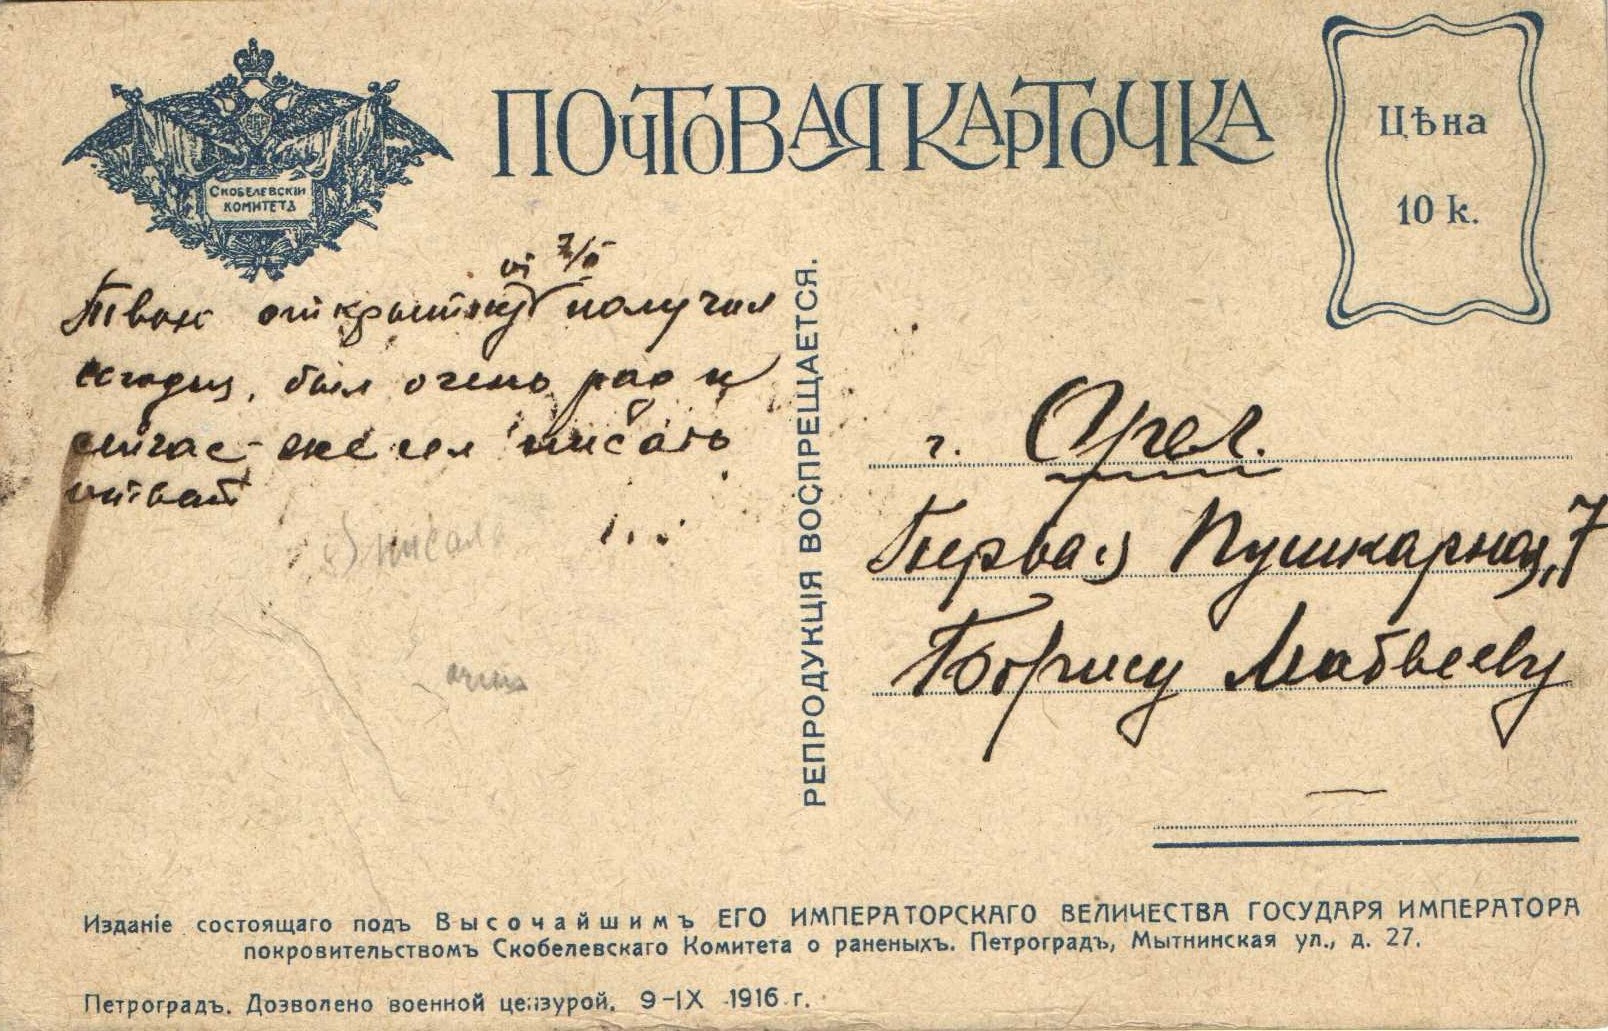 СКОБЕЛЕВСКІЙ
КОМИТЕТЪ
ПОЧТОВАЯ КАРТОЧКА
Цѣна
10 к.
от 7/II
Твою открытку получил
сегодня, был очень рад и
сейчас-же сел писать
ответ
Я писал
г. Орел.
Первая Пушкарная, 7
Борису Матвееву
РЕПРОДУКЦІЯ ВОСПРЕЩАЕТСЯ.
Изданіе состоящаго подъ Высочайшимъ ЕГО ИМПЕРАТОРСКАГО ВЕЛИЧЕСТВА ГОСУДАРЯ ИМПЕРАТОРА
покровительствомъ Скобелевскаго Комитета о раненыхъ. Петроградъ, Мытнинская ул., д. 27.
Петроградъ. Дозволено военной цензурой. 9-IX 1916 г.